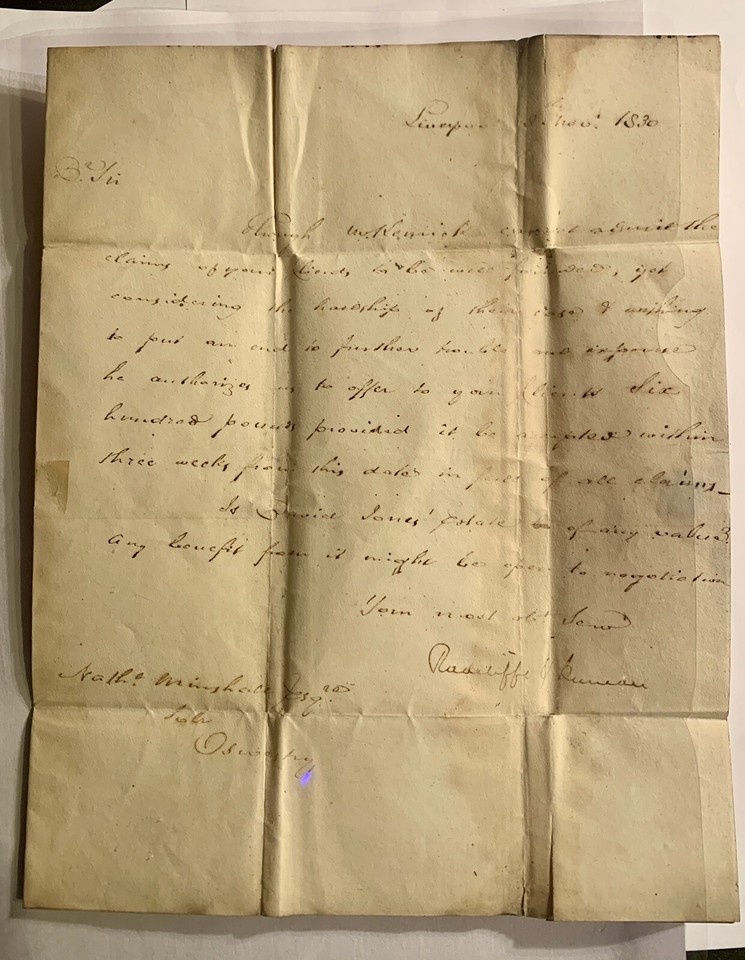 Liverpool 8th Novr. 1830
Dr. Sir
Though Mr. Kerrick cannot admit the
claims of your Clients to be well founded, yet
considering the hardship of their case & wishing
to put an end to further trouble and expense
he authorizes us to offer to your Clients Six
hundred pounds provided it be accepted within
three weeks from this date in full of all claims_
Is David Jones' Estate of any value?
Any benefit from it might be open to negotiation
Your most obt. Servt.
Radcliffe & Duncan
Nathl. Minshall Esqre.
Solr
Oswestry